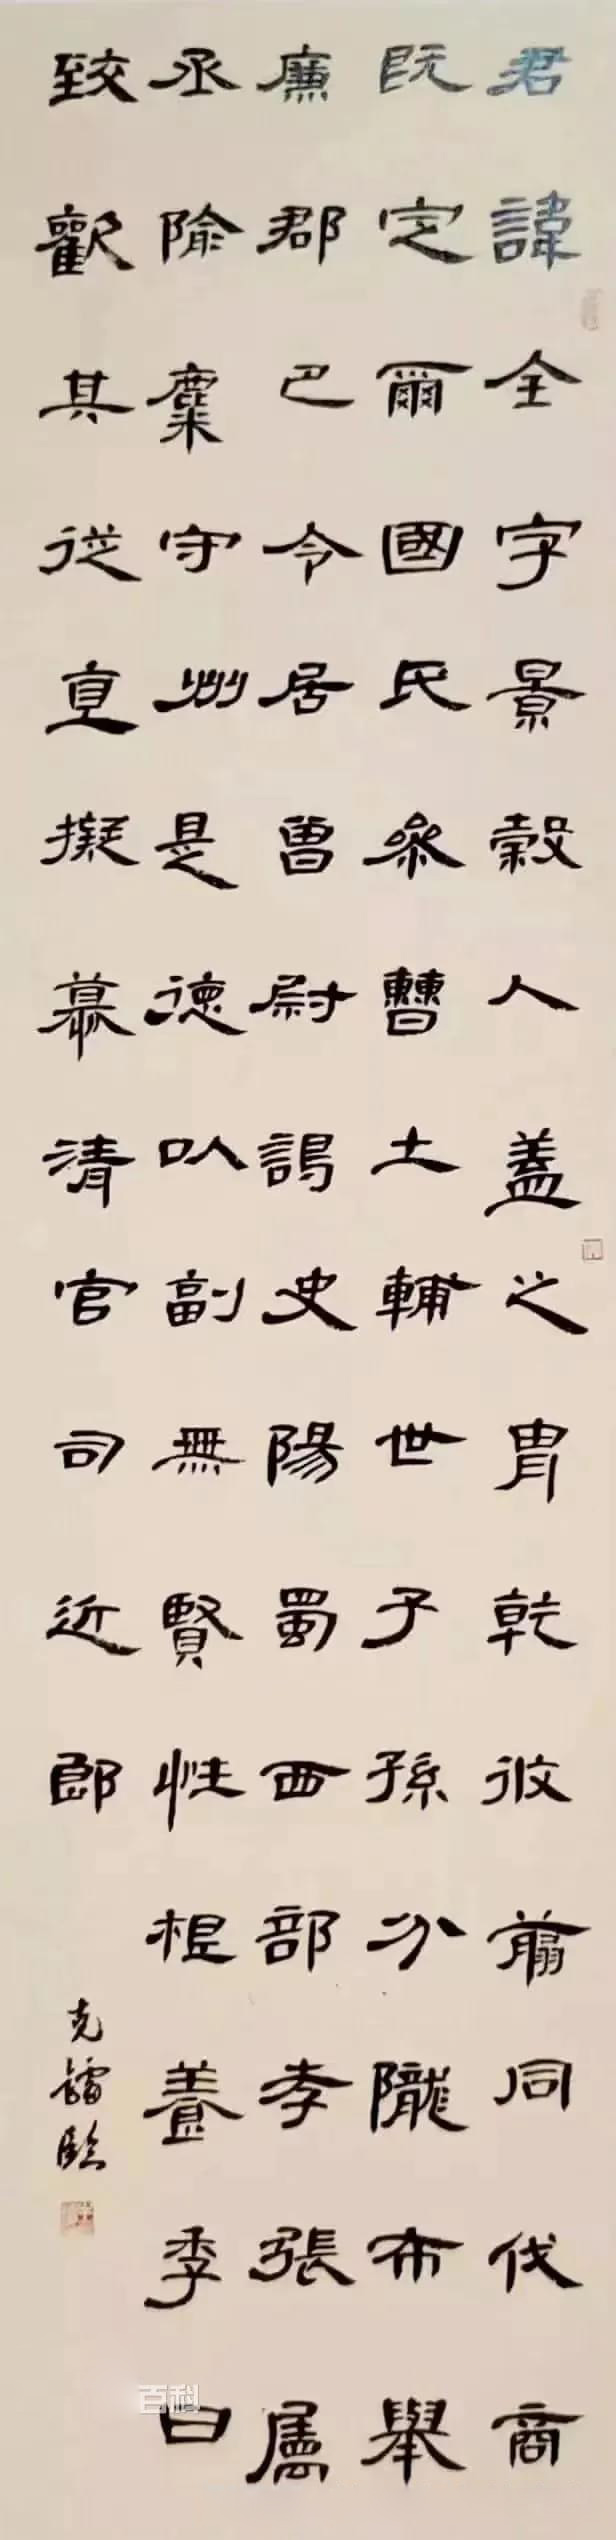 君諱全字景穀人蓋之胄乾翦同伐商
既定爾國氏參曹土輔世子孫分隴布舉
廉郡巴令居曾尉謁史陽蜀西部孝張
丞隃麋守州是德以副無賢性根養季曰
致歡其從直擬慕清官司近郎
克臨
百科